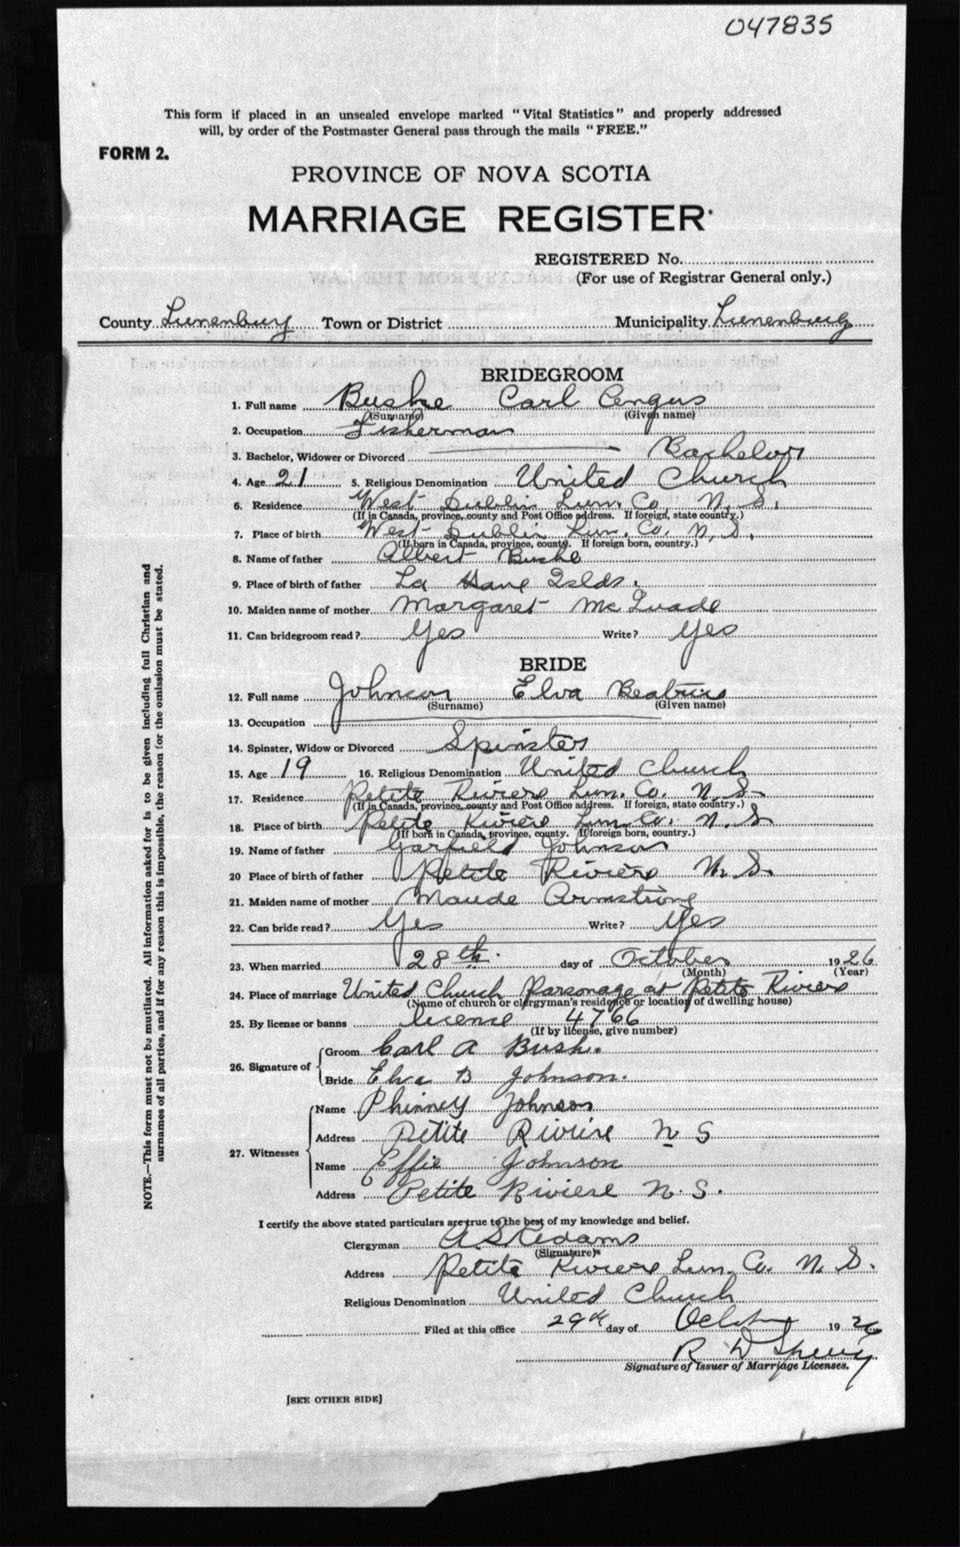 047835
This form if placed in an unsealed envelope marked "Vital Statistics" and properly addressed
will, by order of the Postmaster General pass through the mails "FREE."
FORM 2.
PROVINCE OF NOVA SCOTIA
MARRIAGE REGISTER
REGISTERED No.
(For use of Registrar General only.)
County Lunenburg Town or District Municipality Lunenburg
BRIDEGROOM
1. Full name Bushe Carl Angus
(Surname) (Given name)
2. Occupation Fisherman
3. Bachelor, Widower or Divorced Bachelor
4. Age 21 5. Religious Denomination United Church
6. Residence West Dublin Lun. Co. N. S.
(If in Canada, province, county and Post Office address. If foreign, state country.)
7. Place of birth West Dublin Lun. Co. N. S.
(If born in Canada, province, county. If foreign born, country.)
8. Name of father Albert Bushe
9. Place of birth of father La Have Islds.
10. Maiden name of mother Margaret McQuade
11. Can bridegroom read? Yes Write? Yes
BRIDE
12. Full name Johnson Elva Beatrice
(Surname) (Given name)
13. Occupation
14. Spinster, Widow or Divorced Spinster
15. Age 19 16. Religious Denomination United Church
17. Residence Petite Riviere Lun. Co. N. S.
(If in Canada, province, county and Post Office address. If foreign, state country.)
18. Place of birth Petite Riviere Lun. Co. N. S.
(If born in Canada, province, county. If foreign born, country.)
19. Name of father Garfield Johnson
20 Place of birth of father Petite Riviere N. S.
21. Maiden name of mother Maude Armstrong
22. Can bride read? Yes Write? Yes
23. When married 28th day of October 1926
(Month) (Year)
24. Place of marriage United Church Parsonage at Petite Riviere
(Name of church or clergyman's residence or location of dwelling house)
25. By license or banns license 4766
(If by license, give number)
26. Signature of
Groom Carl A Bush.
Bride Elva B Johnson.
27. Witnesses
Name Phinney Johnson
Address Petite Riviere N S
Name Effie Johnson
Address Petite Riviere N. S.
I certify the above stated particulars are true to the best of my knowledge and belief.
Clergyman Adams
(Signature)
Address Petite Riviere Lun. Co. N. S.
Religious Denomination United Church
Filed at this office 29th day of 1926
R
Signature of Issuer of Marriage Licenses.
[SEE OTHER SIDE]
NOTE.—This form must not be mutilated. All information asked for is to be given including full Christian and
surnames of all parties, and if for any reason this is impossible, the reason for the omission must be stated.